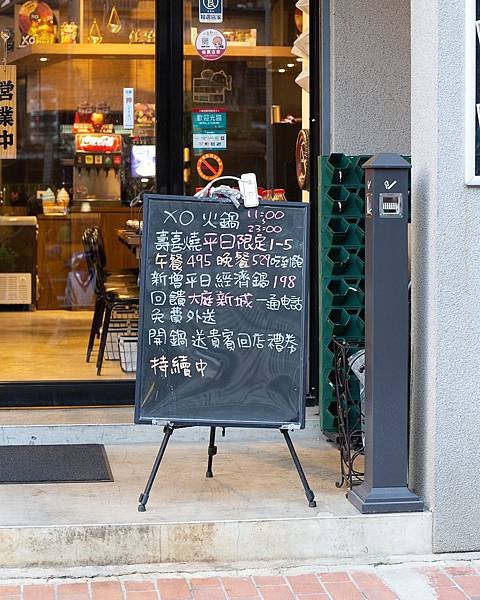 XO
精選店家
營業中
押
歡迎光臨
XO 火鍋 11:00
23:00
壽喜燒平日限定1-5
午餐495晚餐529吃到飽
新增平日經濟鍋198
回饋大庭新城一通電話
免費外送
開鍋送貴賓回店禮券
持續中